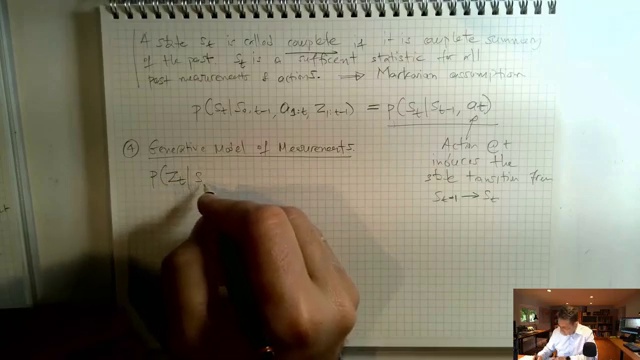 A state St is called complete if it is complete summary
of the past St is a sufficent statistic for all
past measurements & actions. ⟹ Markovian assumption
p(St | S0:t-1, a1:t, Z1:t-1) = p(St | St-1, at)
Action @ t
induces the
state transition from
St-1 → St
④ Generative Model of Measurements
p(Zt | S